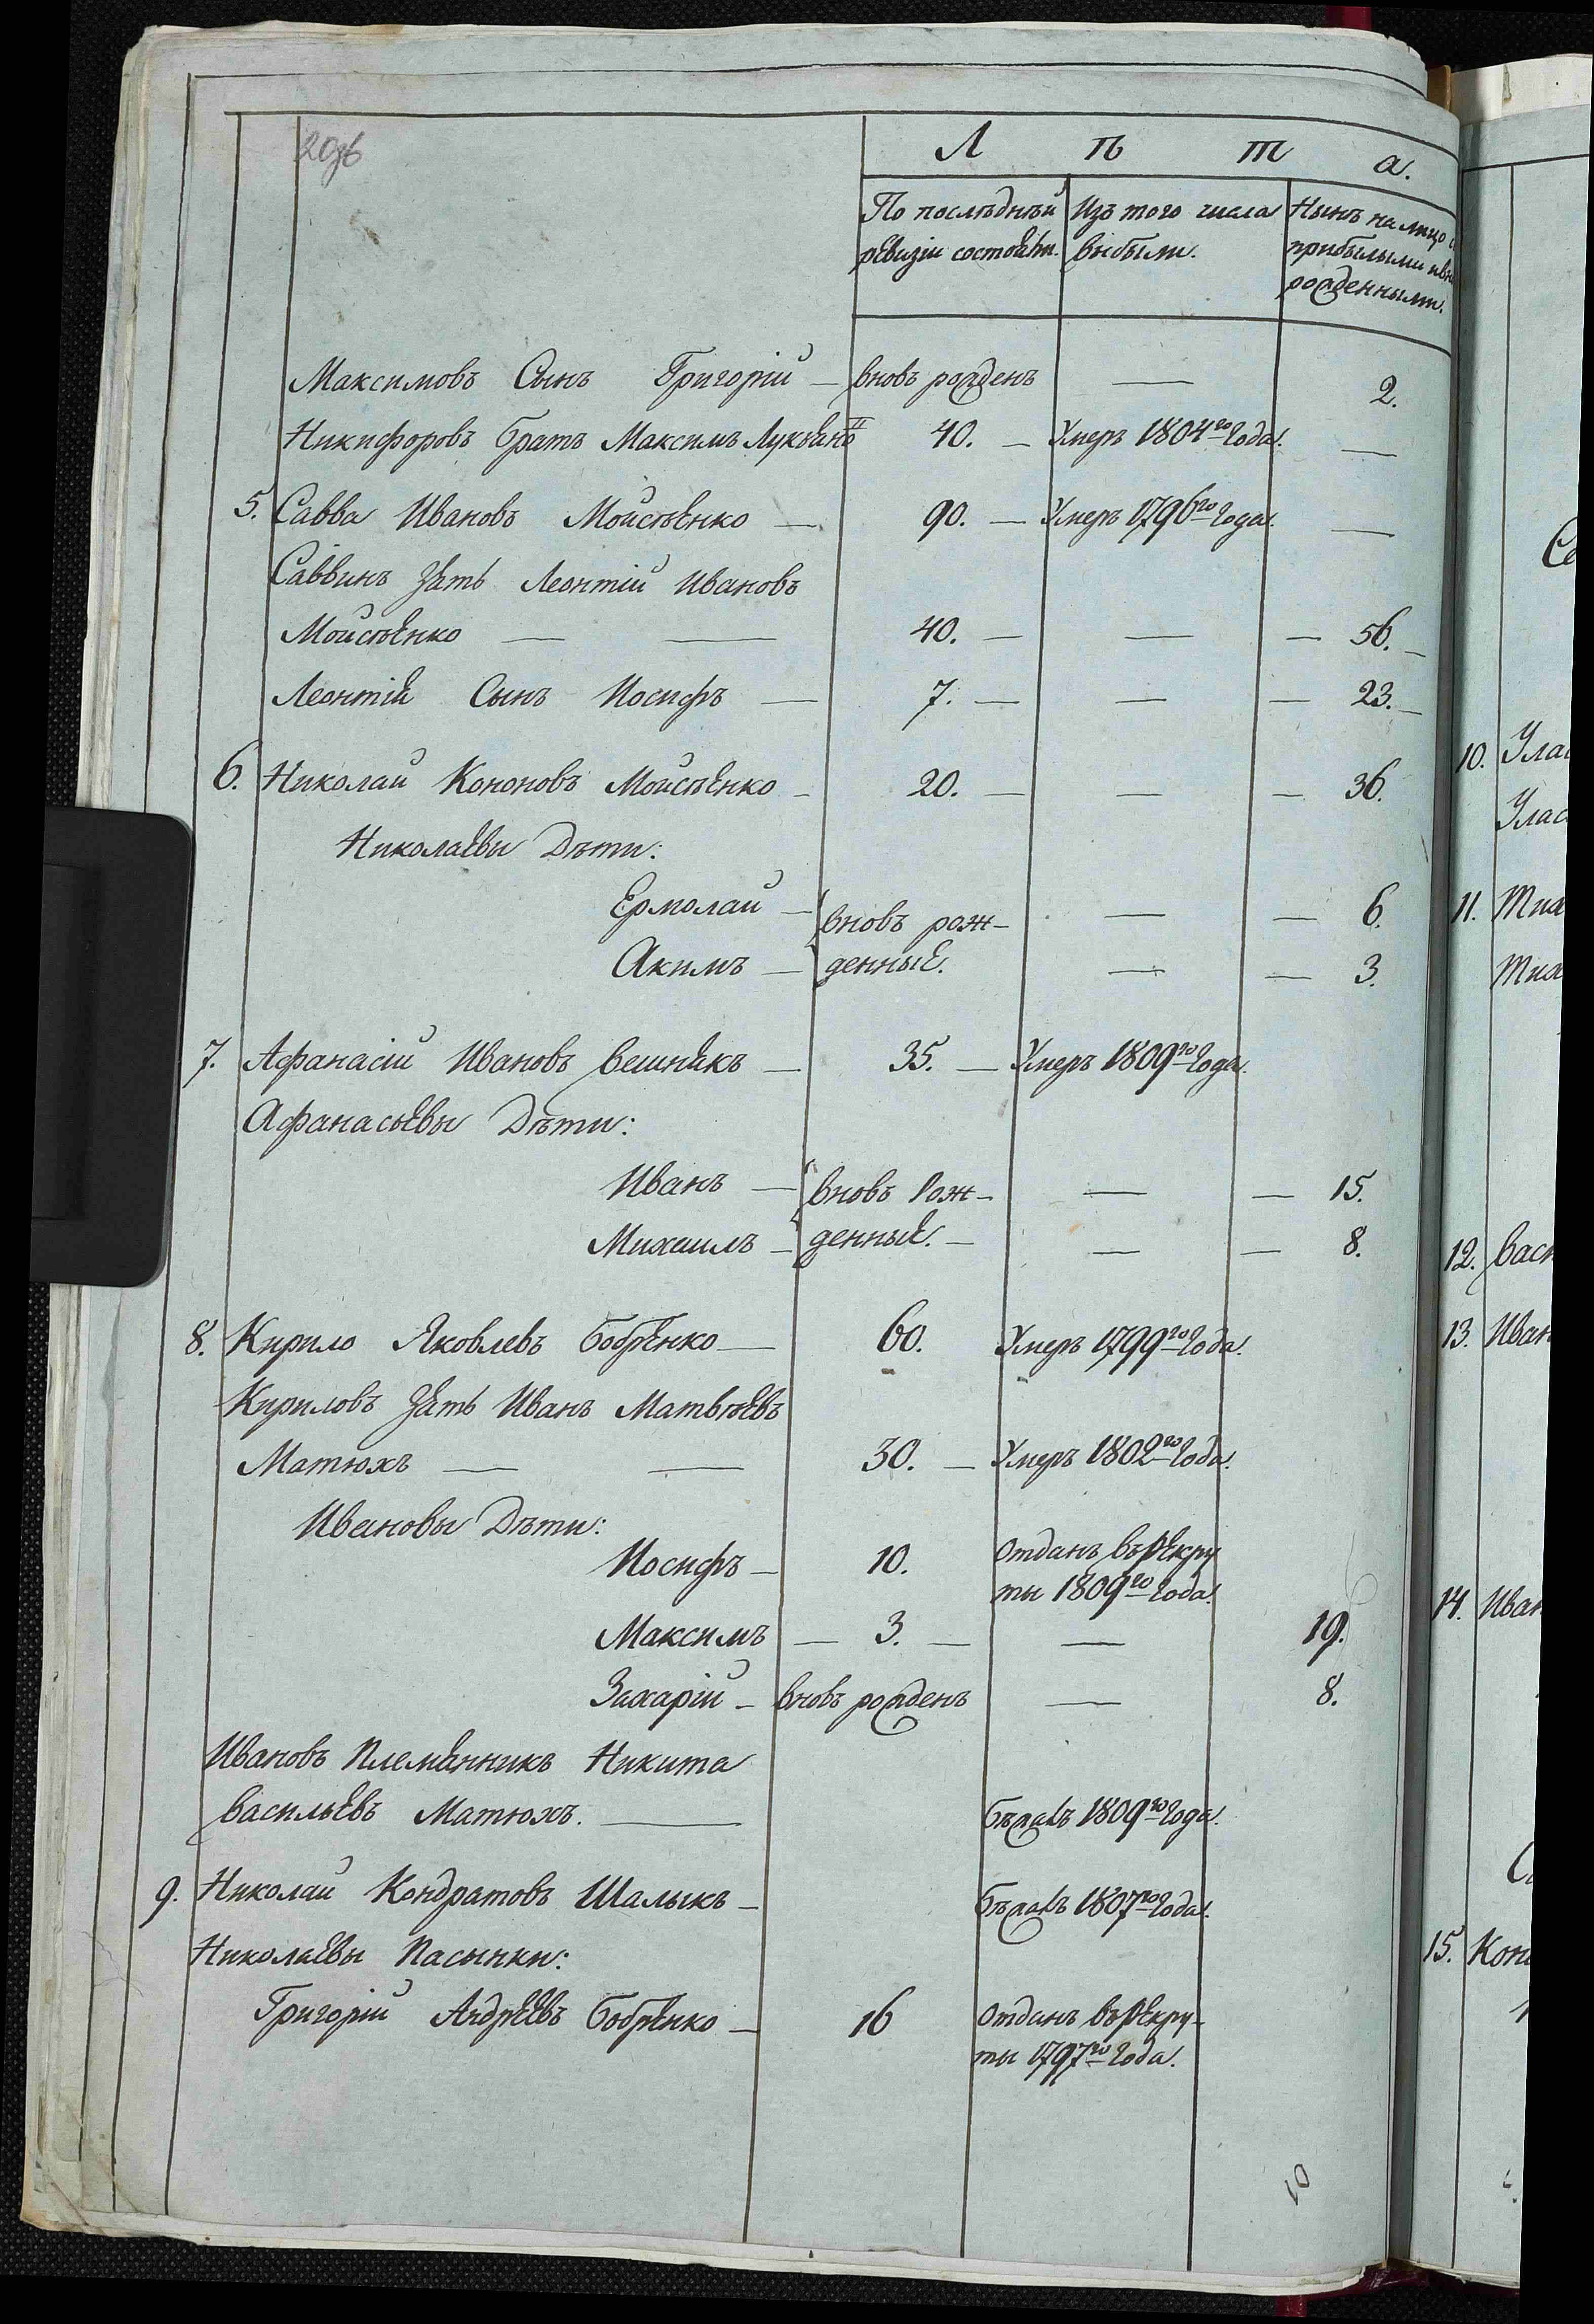 Л ѣ т а.
По послѣднѣй Изъ того числа Нынѣ на лицо с
ревизіи состояли. выбыли. прибылыми и вно
рожденными.
Максимовъ Сынъ Григорій — вновь рожденъ — 2.
Никифоровъ братъ Максимъ Лукьяно 40. — Умеръ 1804го года. —
5. Савва Ивановъ Мойсѣенко — 90. — Умеръ 1796го года. —
Саввинъ Зять Леонтій Ивановъ
Мойсѣенко — — 40. — — — 56. —
Леонтія Сынъ Иосифъ — 7. — — — 23. —
6. Николай Кононовъ Мойсѣенко — 20. — — — 36.
Николаевы Дѣти:
Ермолай — вновь рож- — — 6.
Акимъ — денные. — — 3.
7. Афанасій Ивановъ Вешнякъ — 35. — Умеръ 1809го года.
Афанасьевы Дѣти:
Иванъ — вновь Рож- — — 15.
Михаилъ — денные. — — — 8.
8. Кирило Яковлевъ Бобренко — 60. Умеръ 1799го года.
Кириловъ Зять Иванъ Матвѣевъ
Матюхъ — — 30. — Умеръ 1802го года.
Ивановы Дѣти:
Иосифъ — 10. Отданъ въ Рекру
ты 1809го года.
Максимъ — 3. — — 19.
Захарій — вновь рожденъ — 8.
Ивановъ Племянникъ Никита
Васильевъ Матюхъ. — Бѣжалъ 1809го года.
9. Николай Кондратовъ Шалыкъ — Бѣжалъ 1807го года.
Николаевы Пасынки:
Григорій Андреевъ Бобренко — 16 Отданъ въ Рекру-
ты 1797го года.
10
10. Улас
Улас
11. Тиха
Тиха
12. Васи
13. Иван
14. Иван
15. Кон